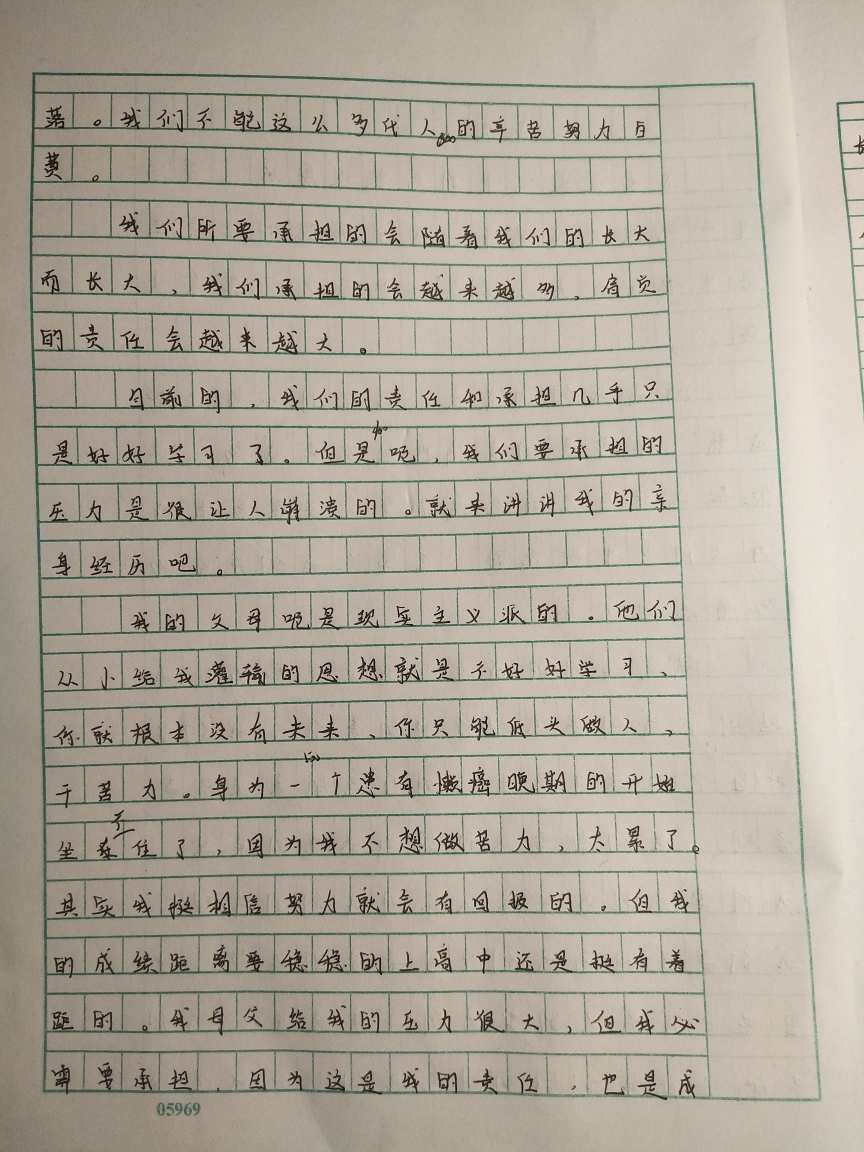 落。我们不能这么多代人的辛苦努力白
600
费。
我们所要承担的会随着我们的长大
而长大，我们承担的会越来越多，肩负
的责任会越来越大。
目前的，我们的责任和承担几乎只
是好好学习了。但是呢，我们要承担的
400
压力是很让人崩溃的。就来讲讲我的亲
身经历吧。
我的父母呢是现实主义派的。他们
从小给我灌输的思想就是不好好学习、
你就根本没有未来、你只能低头做人，
干苦力。身为一个患有懒癌晚期的开始
500
坐不住了，因为我不想做苦力，太累了。
其实我挺相信努力就会有回报的。但我
的成绩距离要稳稳的上高中还是挺有着
距的。我母父给我的压力很大，但我必
需要承担，因为这是我的责任，也是成
05969